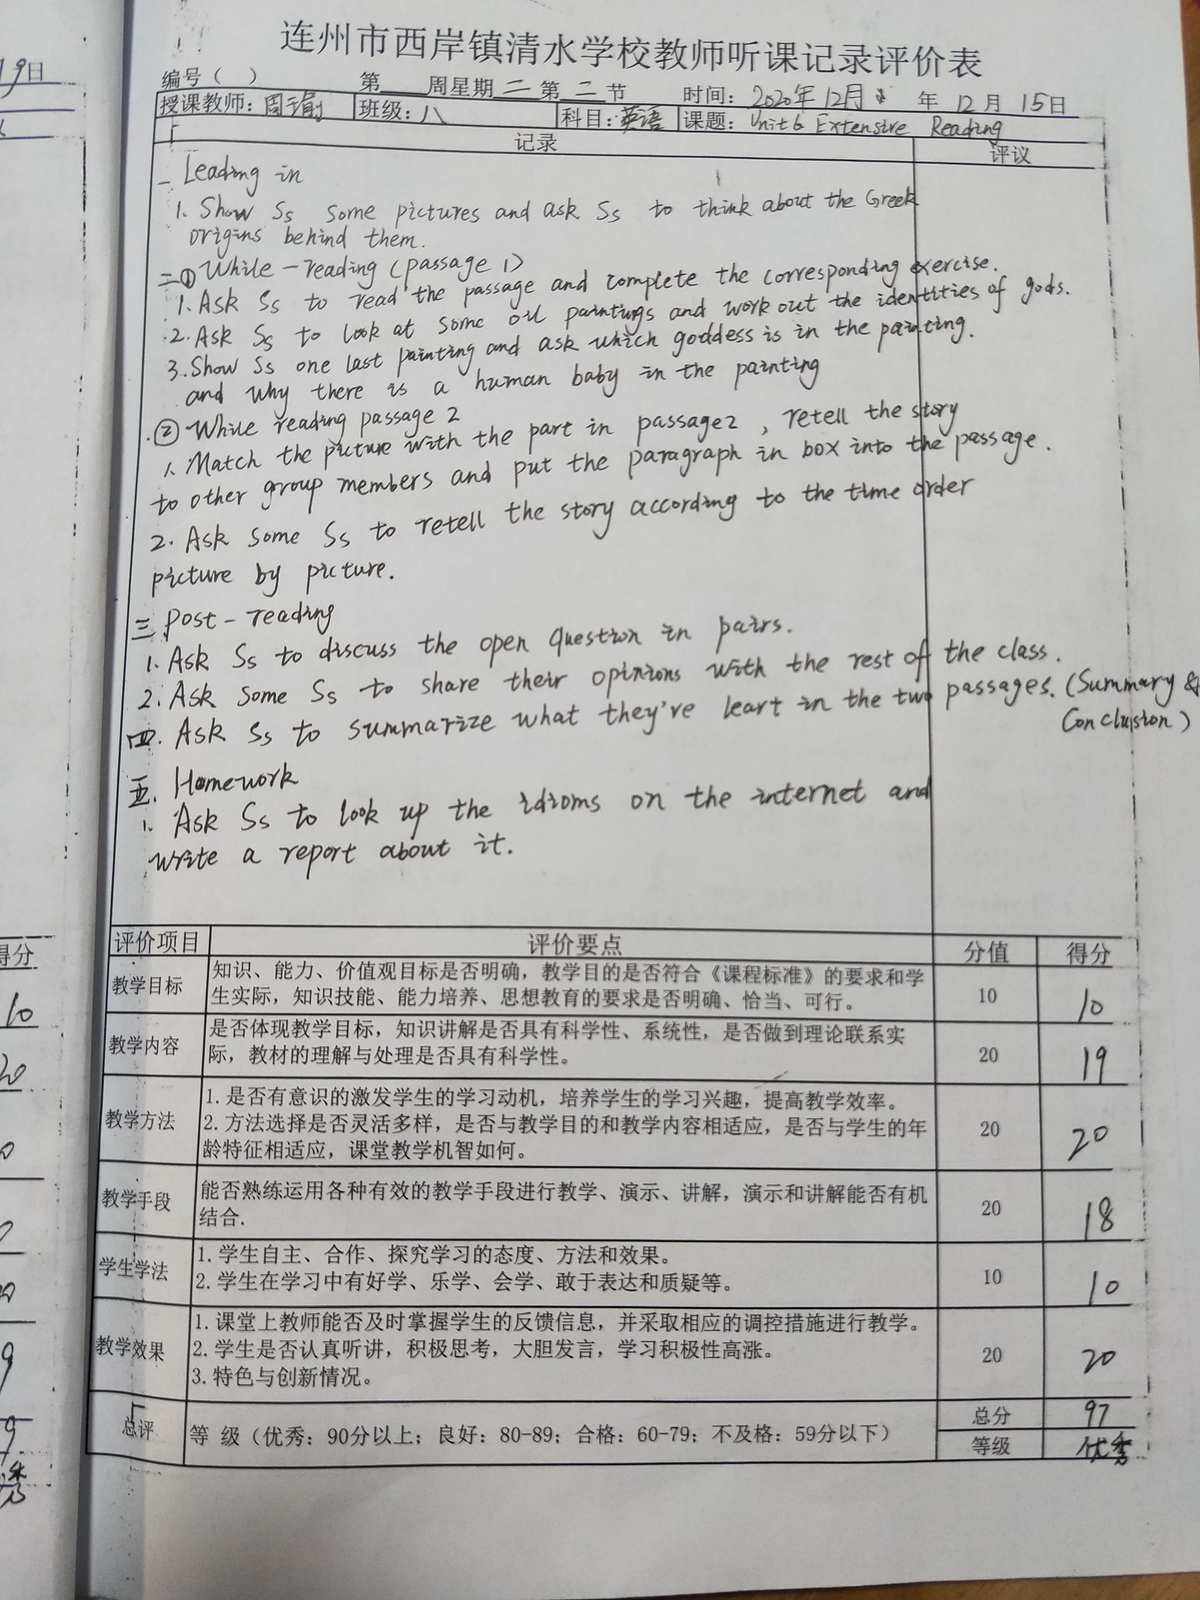 连州市西岸镇清水学校教师听课记录评价表
编号（ ） 第 周星期 二 第 二 节 时间：2020年12月 年 12月 15日
授课教师：周 班级：八 科目：英语 课题：Unit 6 Extensive Reading
记录 评议
一 Leading in
1. Show Ss some pictures and ask Ss to think about the Greek
origins behind them.
二 ① While-reading (passage 1)
1. Ask Ss to read the passage and complete the corresponding exercise.
2. Ask Ss to look at some oil paintings and work out the identities of gods.
3. Show Ss one last painting and ask which goddess is in the painting.
and why there is a human baby in the painting
② While reading passage 2
1. Match the picture with the part in passage2, retell the story
to other group members and put the paragraph in box into the passage.
2. Ask some Ss to retell the story according to the time order
picture by picture.
三 Post-reading
1. Ask Ss to discuss the open question in pairs.
2. Ask some Ss to share their opinions with the rest of the class.
四. Ask Ss to summarize what they're leart in the two passages. (Summary &
Conclusion)
五. Homework
1. Ask Ss to look up the idioms on the internet and
write a report about it.
评价项目 评价要点 分值 得分
教学目标 知识、能力、价值观目标是否明确，教学目的是否符合《课程标准》的要求和学
生实际，知识技能、能力培养、思想教育的要求是否明确、恰当、可行。 10 10
教学内容 是否体现教学目标，知识讲解是否具有科学性、系统性，是否做到理论联系实
际，教材的理解与处理是否具有科学性。 20 19
教学方法 1. 是否有意识的激发学生的学习动机，培养学生的学习兴趣，提高教学效率。
2. 方法选择是否灵活多样，是否与教学目的和教学内容相适应，是否与学生的年
龄特征相适应，课堂教学机智如何。 20 20
教学手段 能否熟练运用各种有效的教学手段进行教学、演示、讲解，演示和讲解能否有机
结合. 20 18
学生学法 1. 学生自主、合作、探究学习的态度、方法和效果。
2. 学生在学习中有好学、乐学、会学、敢于表达和质疑等。 10 10
教学效果 1. 课堂上教师能否及时掌握学生的反馈信息，并采取相应的调控措施进行教学。
2. 学生是否认真听讲，积极思考，大胆发言，学习积极性高涨。
3. 特色与创新情况。 20 20
总评 等 级（优秀：90分以上；良好：80-89；合格：60-79；不及格：59分以下） 总分 97
等级 优秀
19日
得分
10
20
9
9
秀